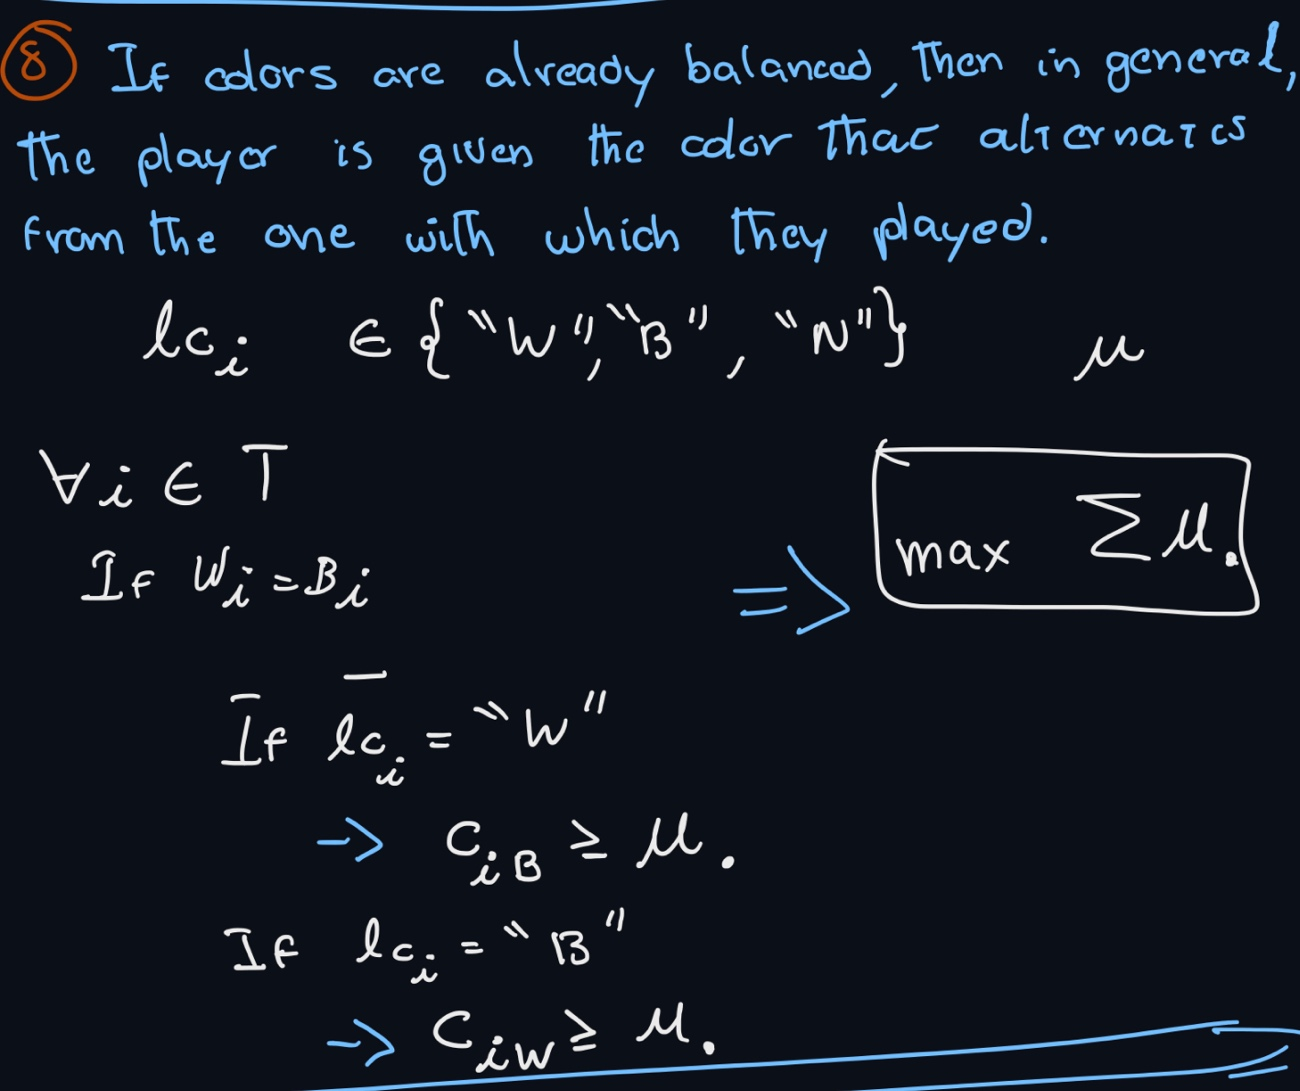 ⑧ If colors are already balanced, then in general,
the player is given the color that alternates
from the one with which they played.
lc_i ∈ {"W", "B", "N"} μ
∀i ∈ T
If W_i = B_i
=> max Σμ.
If l̅c_i = "W"
-> C_iB ≥ μ.
If lc_i = "B"
-> C_iW ≥ μ.